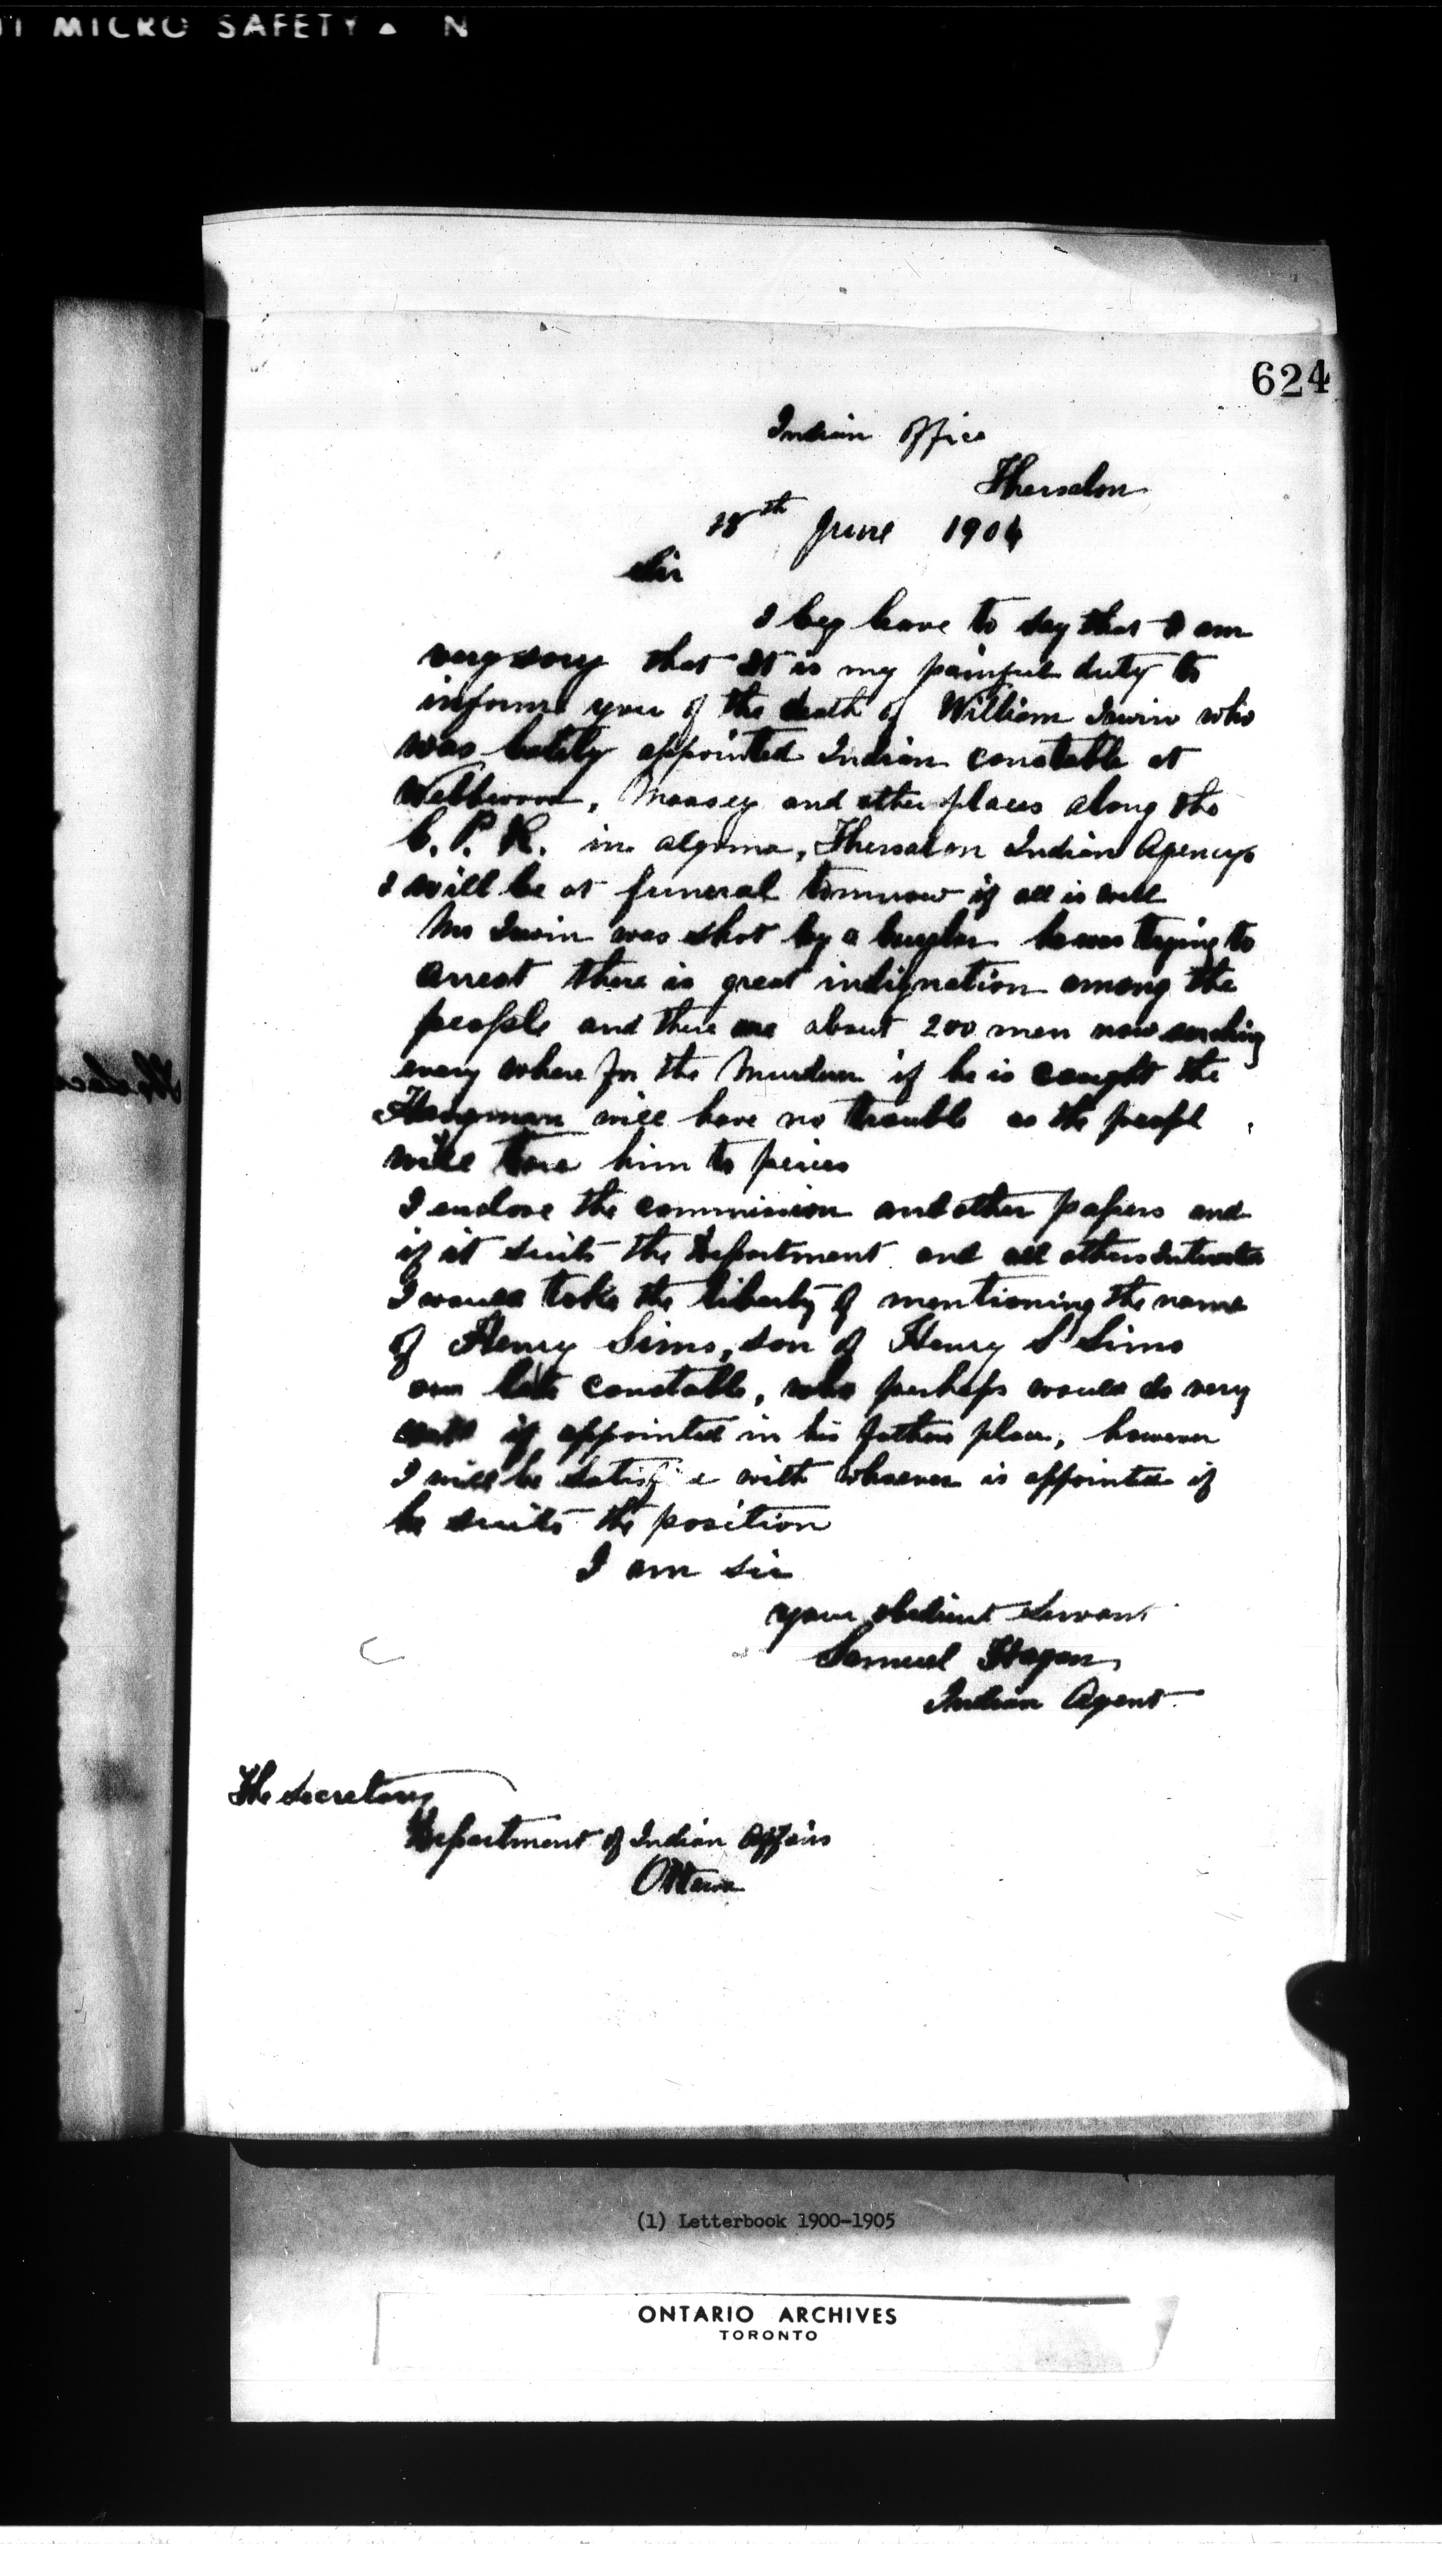 MICRO SAFETY ▲ N
624
Indian Office
Thessalon
18th June 1904
Sir
I beg leave to say that I am
very sory that It is my painful duty to
inform you of the death of William Irwin who
was lately appointed Indian constable at
Webbwood, Massey and other places along the
C. P. R. in algoma, Thessalon Indian Agency
I will be at funeral tomorrow if all is well
Mr Irwin was shot by a burglar he was trying to
arrest there is great indignation among the
people and there are about 200 men now serching
every where for the Murderer if he is caught the
Hangman will have no trouble as the peopl
will tare him to peices
I enclose the commission and other papers and
if it suits the Department and all others
I would take the liberty of mentioning the name
of Henry Sims, son of Henry S Sims
our late constable, who perhaps would do very
well if appointed in his fathers place, however
I will be with whoever is appointed if
he suits the position
I am sir
your obedient Servant
Samuel Hagan,
Indian Agent
The Secretary
Department of Indian Affairs
Ottawa
(1) Letterbook 1900-1905
ONTARIO ARCHIVES
TORONTO